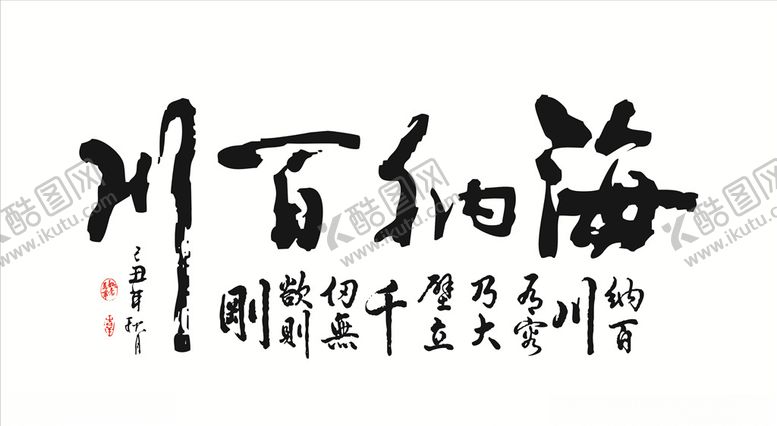 海纳百川
纳百
川
有容
乃大
壁立
千
仞無
欲則
剛
己丑年秋月
酷图网
www.ikutu.com
酷图网
www.ikutu.com
酷图网
www.ikutu.com
酷图网
www.ikutu.com